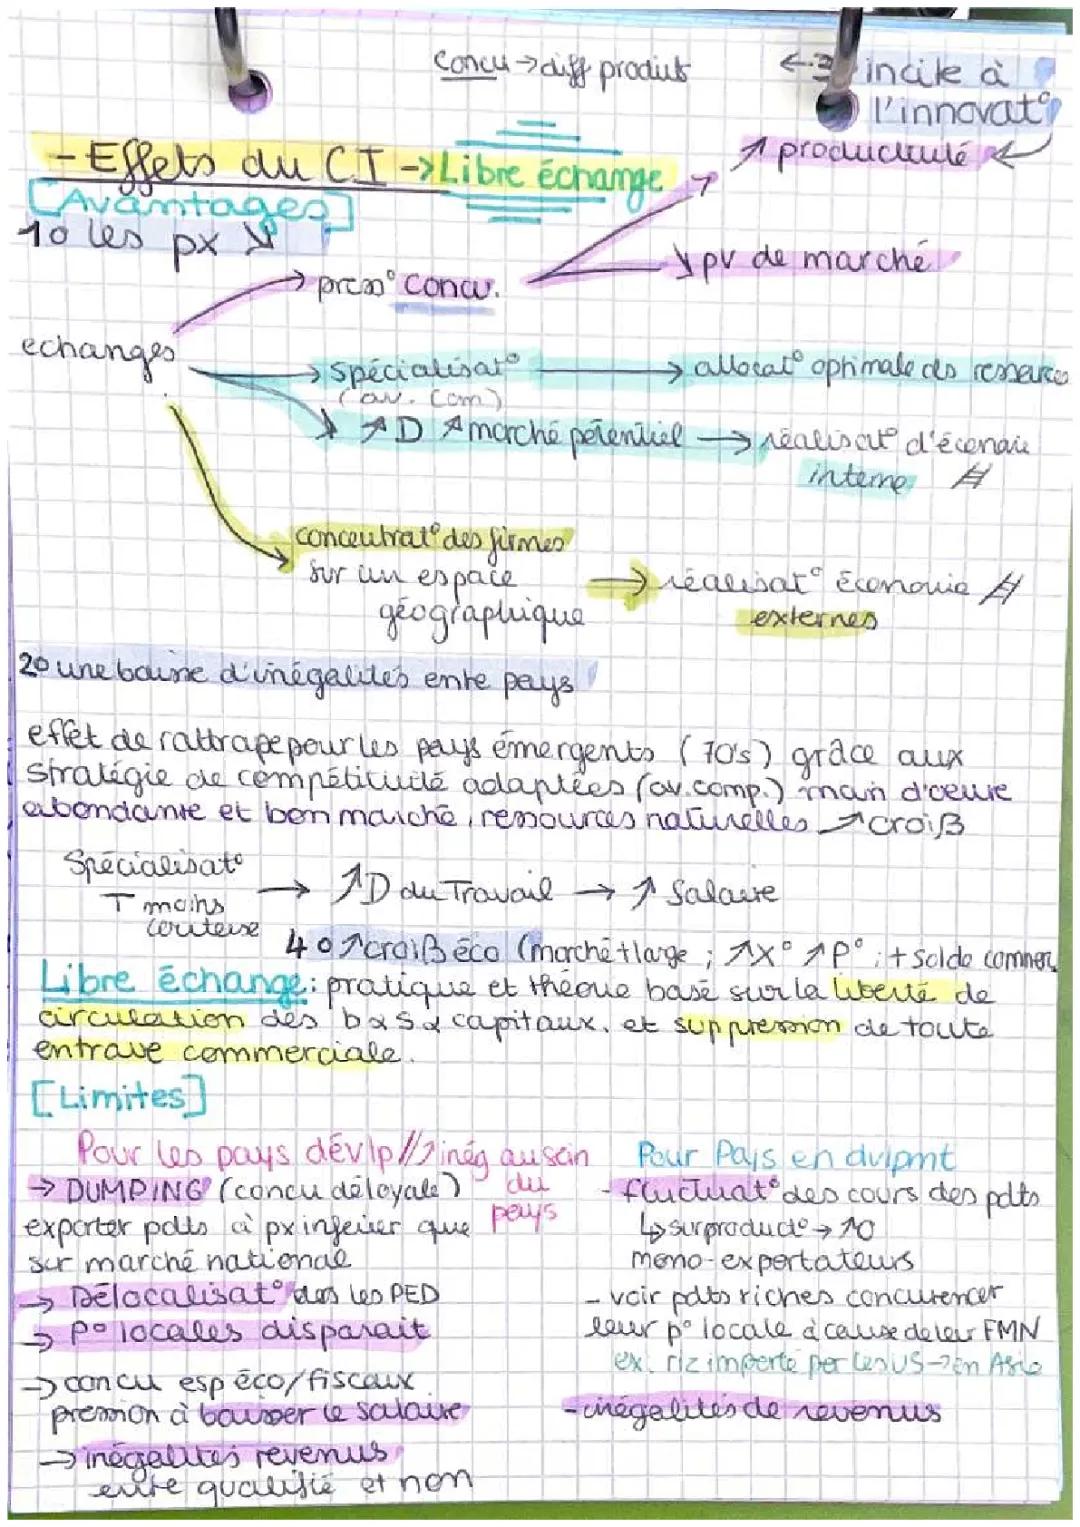 concu → diff produits
← 3° incite à
l'innovat°
- Effets du CI → Libre échange
↗ productivité
[Avantages]
1° les px ↘
↘ pv de marché
→ press° concu.
echanges
→ spécialisat° → allocat° optimale des ressources
(av. com)
↗ D ↗ marché potentiel → réalisat° d'économie
interne
concentrat° des firmes
sur un espace → réalisat° économie
géographique
externes
2° une baisse d'inégalités entre pays
effet de rattrape pour les pays émergents (70's) grâce aux
stratégie de compétitivité adaptées (av. comp.) main d'oeuvre
abondante et bon marché, ressources naturelles ↗ croiß
Spécialisat°
T moins → ↗ D du Travail → ↗ Salaire
couteuse
4° ↗ croiß éco (marché + large ; ↗ X° ↗ P° ; + solde commer
Libre échange : pratique et théorie basé sur la liberté de
circulation des b & s & capitaux. et suppression de toute
entrave commerciale.
[Limites]
Pour les pays dévlp // ↗ inég au sein
du
pays
→ DUMPING (concu déloyale)
exporter pdts à px inférieur que
sur marché national
→ Délocalisat° dans les PED
→ P° locales disparait
→ concu esp éco/fiscaux
pression à baisser le salaire
→ inégalités revenus
entre qualifié et non
Pour Pais en dvlpmt
- fluctuat° des cours des pdts
↳ surproduct° → ↗ O
mono-exportateurs
- voir pdts riches concurencer
leur p° locale à cause de leur FMN
ex. riz importé par les US → en Asie
- inégalités de revenus